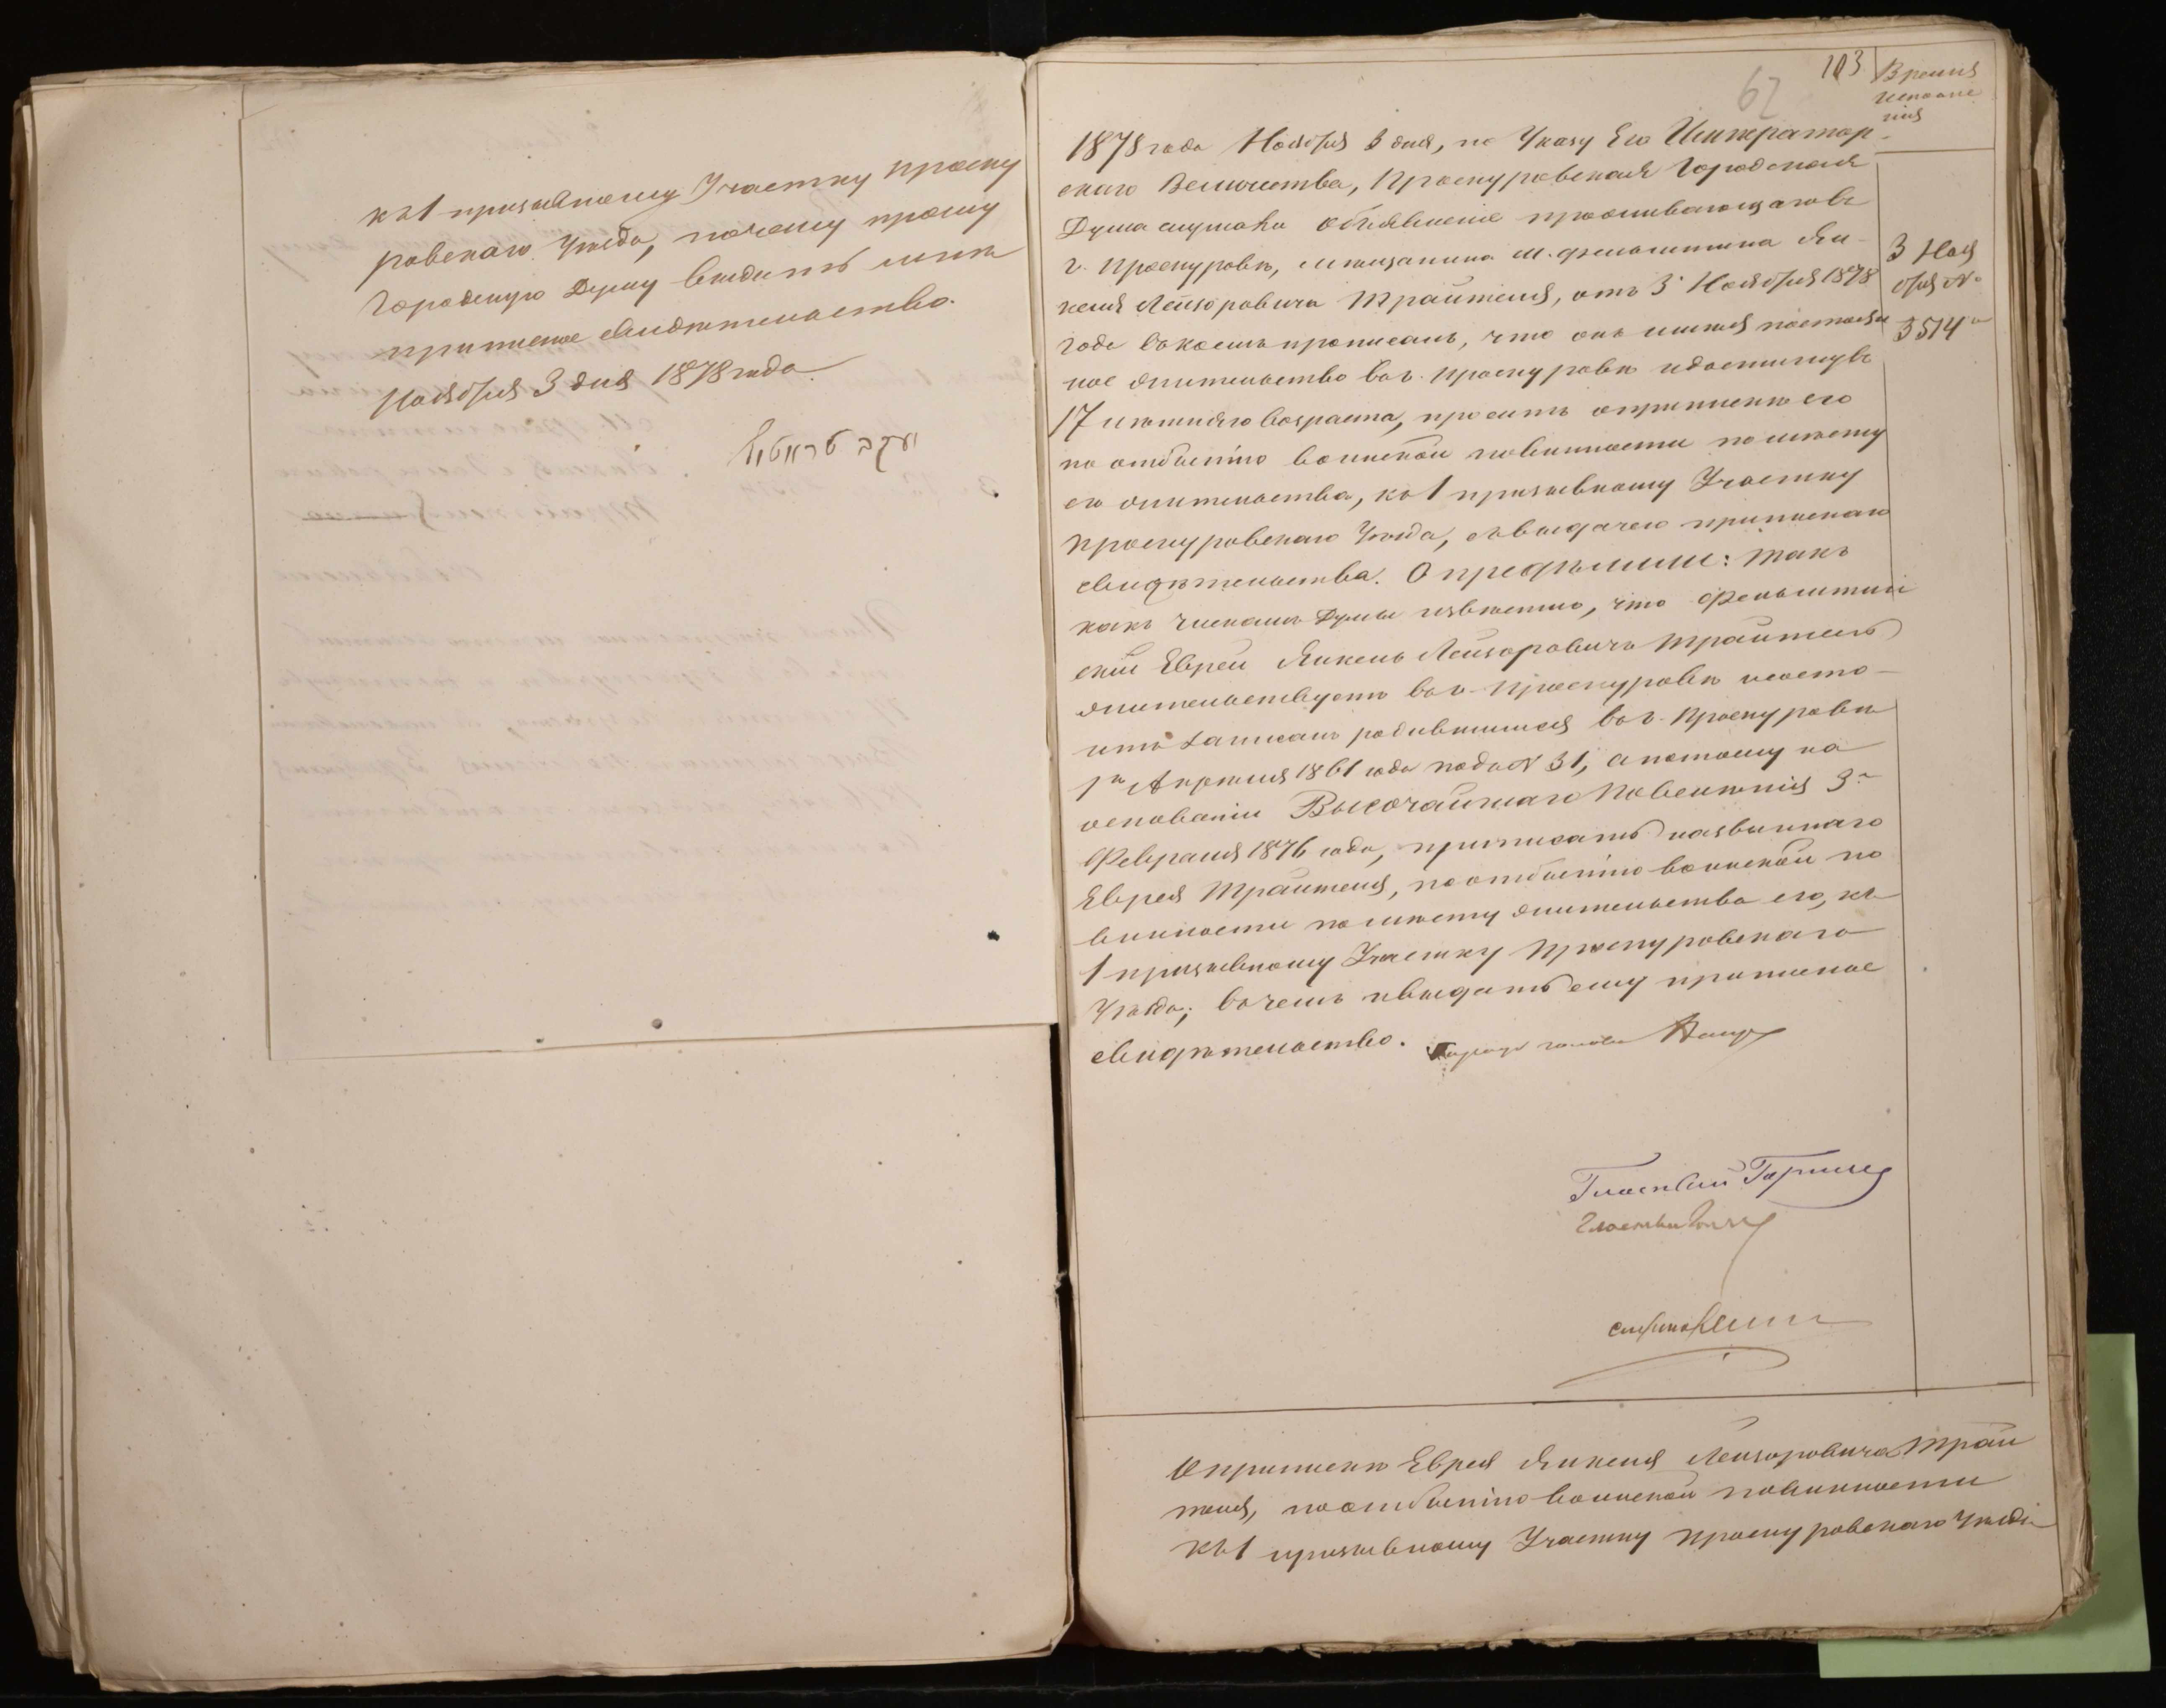 къ 1 призывному Участку Проску
ровскаго Уѣзда, почему прошу
Городскую Думу выдать мнѣ
приписное свидѣтельство.
Ноября 3 дня 1878 года.
יעקב טראטיל
62
103
Время
исполне
нія
1878 года Ноября 3 дня, по Указу Его Император-
скаго Величества, Проскуровская Городская
Дума слушала объявленіе проживающаго въ
г. Проскуровѣ, мѣщанина м. Фельштина Ян-
келя Лейзоровича Трайтеля, отъ 3 Ноября 1878
года въ коемъ прописалъ, что онъ имѣя постоян
ное жительство въ г. Проскуровѣ и достигнувъ
17 лѣтняго возраста, проситъ о припискѣ его
по отбытію воинской повинности по мѣсту
его жительства, къ 1 призывному Участку
Проскуровскаго Уѣзда, съ выдачею приписнаго
свидѣтельства. Опредѣлили: такъ
какъ членамъ Думы извѣстно, что Фельштин
скій Еврей Янкель Лейзоровичъ Трайтель
жительствуетъ въ г. Проскуровѣ и состо-
итъ записанъ родившимся въ г. Проскуровѣ
1го Апрѣля 1861 года подъ № 31, а потому на
основаніи Высочайшаго Повелѣнія 3го
Февраля 1876 года, приписать названнаго
Еврея Трайтеля, по отбытію воинской по
винности по мѣсту жительства его, къ
1 призывному Участку Проскуровскаго
Уѣзда; въ чемъ и выдать ему приписное
свидѣтельство.
3 Ноя
бря №
3514
Гласный
Гласный
О припискѣ Еврея Янкеля Лейзоровича Трай
теля, по отбытію воинской повинности
къ 1 призывному Участку Проскуровскаго Уѣзда